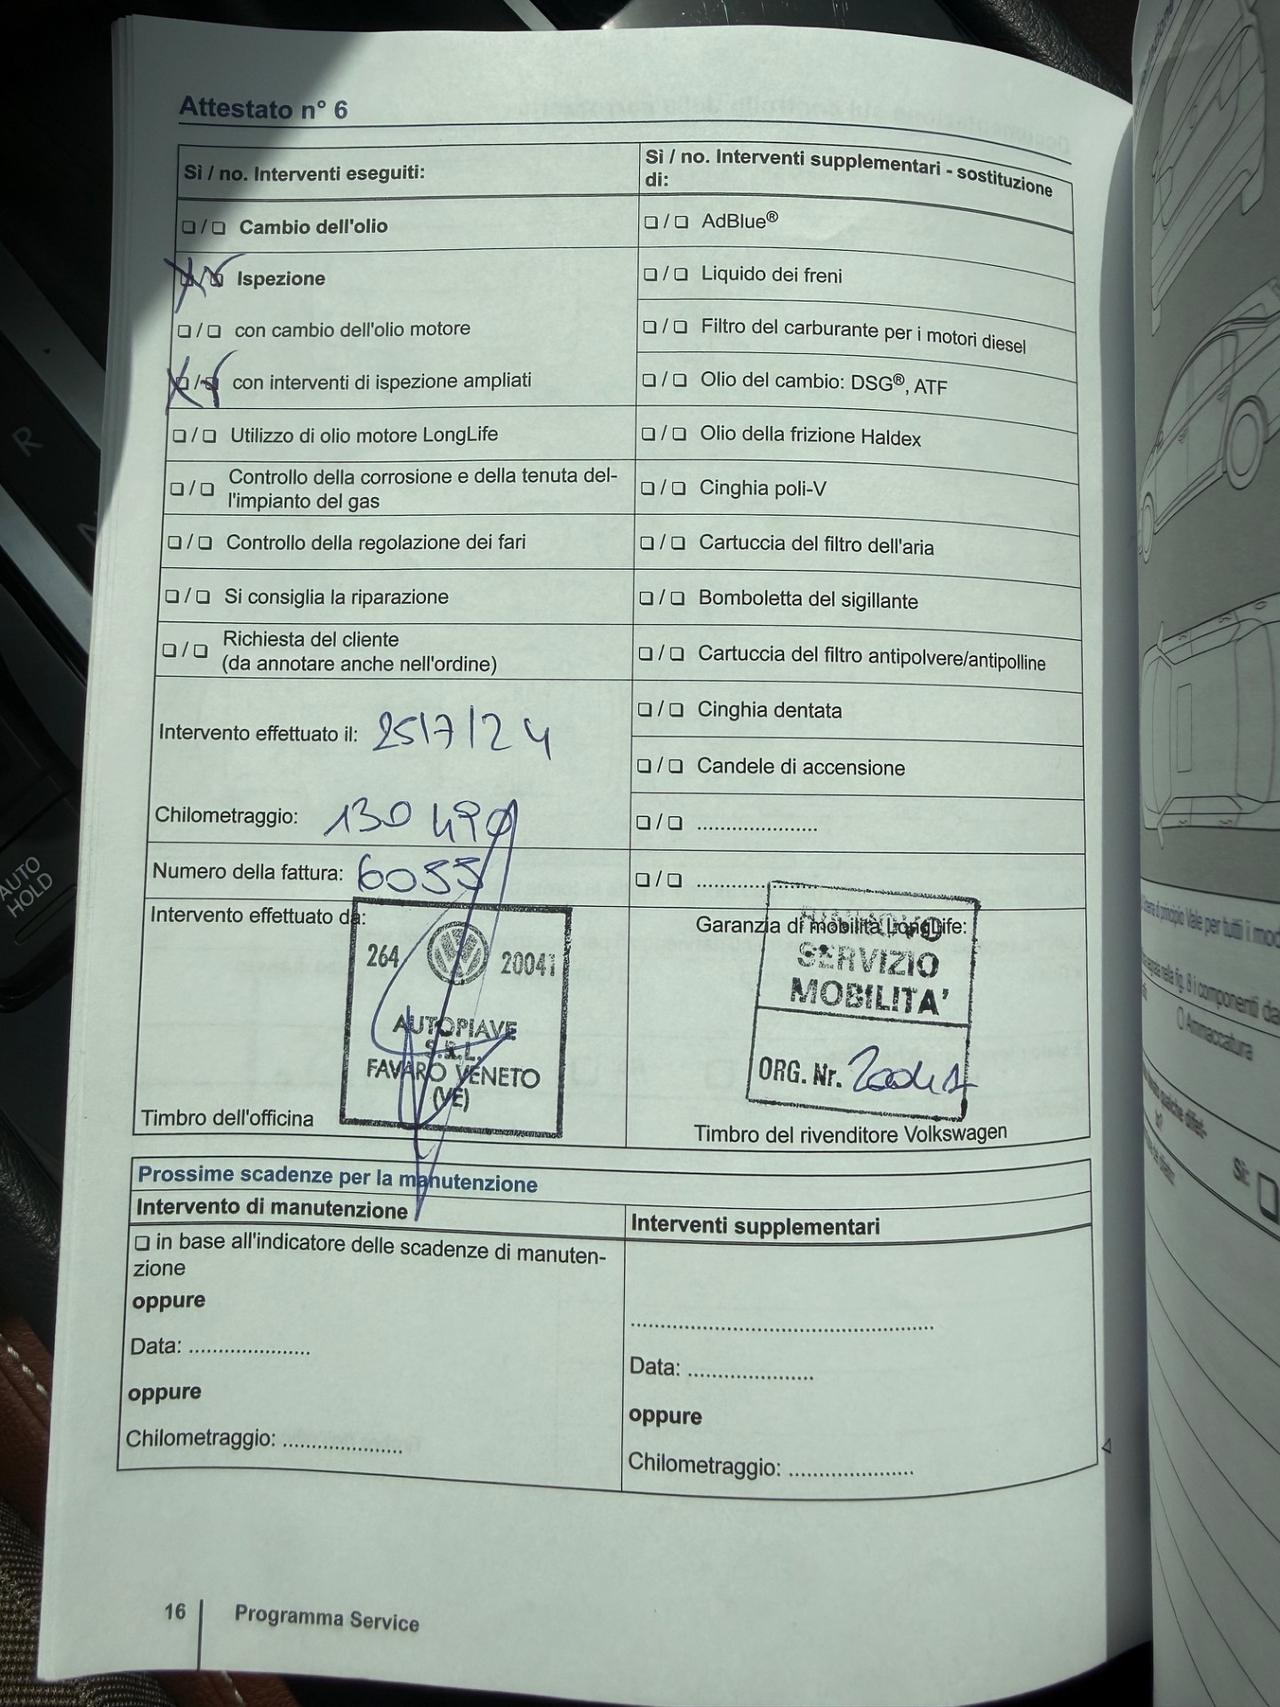 Attestato n° 6
Sì / no. Interventi eseguiti:
❏ / ❏ Cambio dell'olio
Ispezione
❏ / ❏ con cambio dell'olio motore
con interventi di ispezione ampliati
❏ / ❏ Utilizzo di olio motore LongLife
❏ / ❏ Controllo della corrosione e della tenuta del-
l'impianto del gas
❏ / ❏ Controllo della regolazione dei fari
❏ / ❏ Si consiglia la riparazione
❏ / ❏ Richiesta del cliente
(da annotare anche nell'ordine)
Intervento effettuato il: 25/7/24
Chilometraggio: 130 490
Numero della fattura: 6055
Intervento effettuato da:
264 20041
AUTOPIAVE
S.R.L.
FAVARO VENETO
(VE)
Timbro dell'officina
Sì / no. Interventi supplementari - sostituzione
di:
❏ / ❏ AdBlue®
❏ / ❏ Liquido dei freni
❏ / ❏ Filtro del carburante per i motori diesel
❏ / ❏ Olio del cambio: DSG®, ATF
❏ / ❏ Olio della frizione Haldex
❏ / ❏ Cinghia poli-V
❏ / ❏ Cartuccia del filtro dell'aria
❏ / ❏ Bomboletta del sigillante
❏ / ❏ Cartuccia del filtro antipolvere/antipolline
❏ / ❏ Cinghia dentata
❏ / ❏ Candele di accensione
❏ / ❏ .....................
❏ / ❏ .....................
Garanzia di mobilità LongLife:
SERVIZIO
MOBILITA'
ORG. Nr. 20041
Timbro del rivenditore Volkswagen
Prossime scadenze per la manutenzione
Intervento di manutenzione
❏ in base all'indicatore delle scadenze di manuten-
zione
oppure
Data: .....................
oppure
Chilometraggio: .....................
Interventi supplementari
.....................................................
Data: .....................
oppure
Chilometraggio: .....................
16 Programma Service
R
AUTO
HOLD
Vale per tutti i mod
i componenti da
Ammaccatura
Sì: ❏